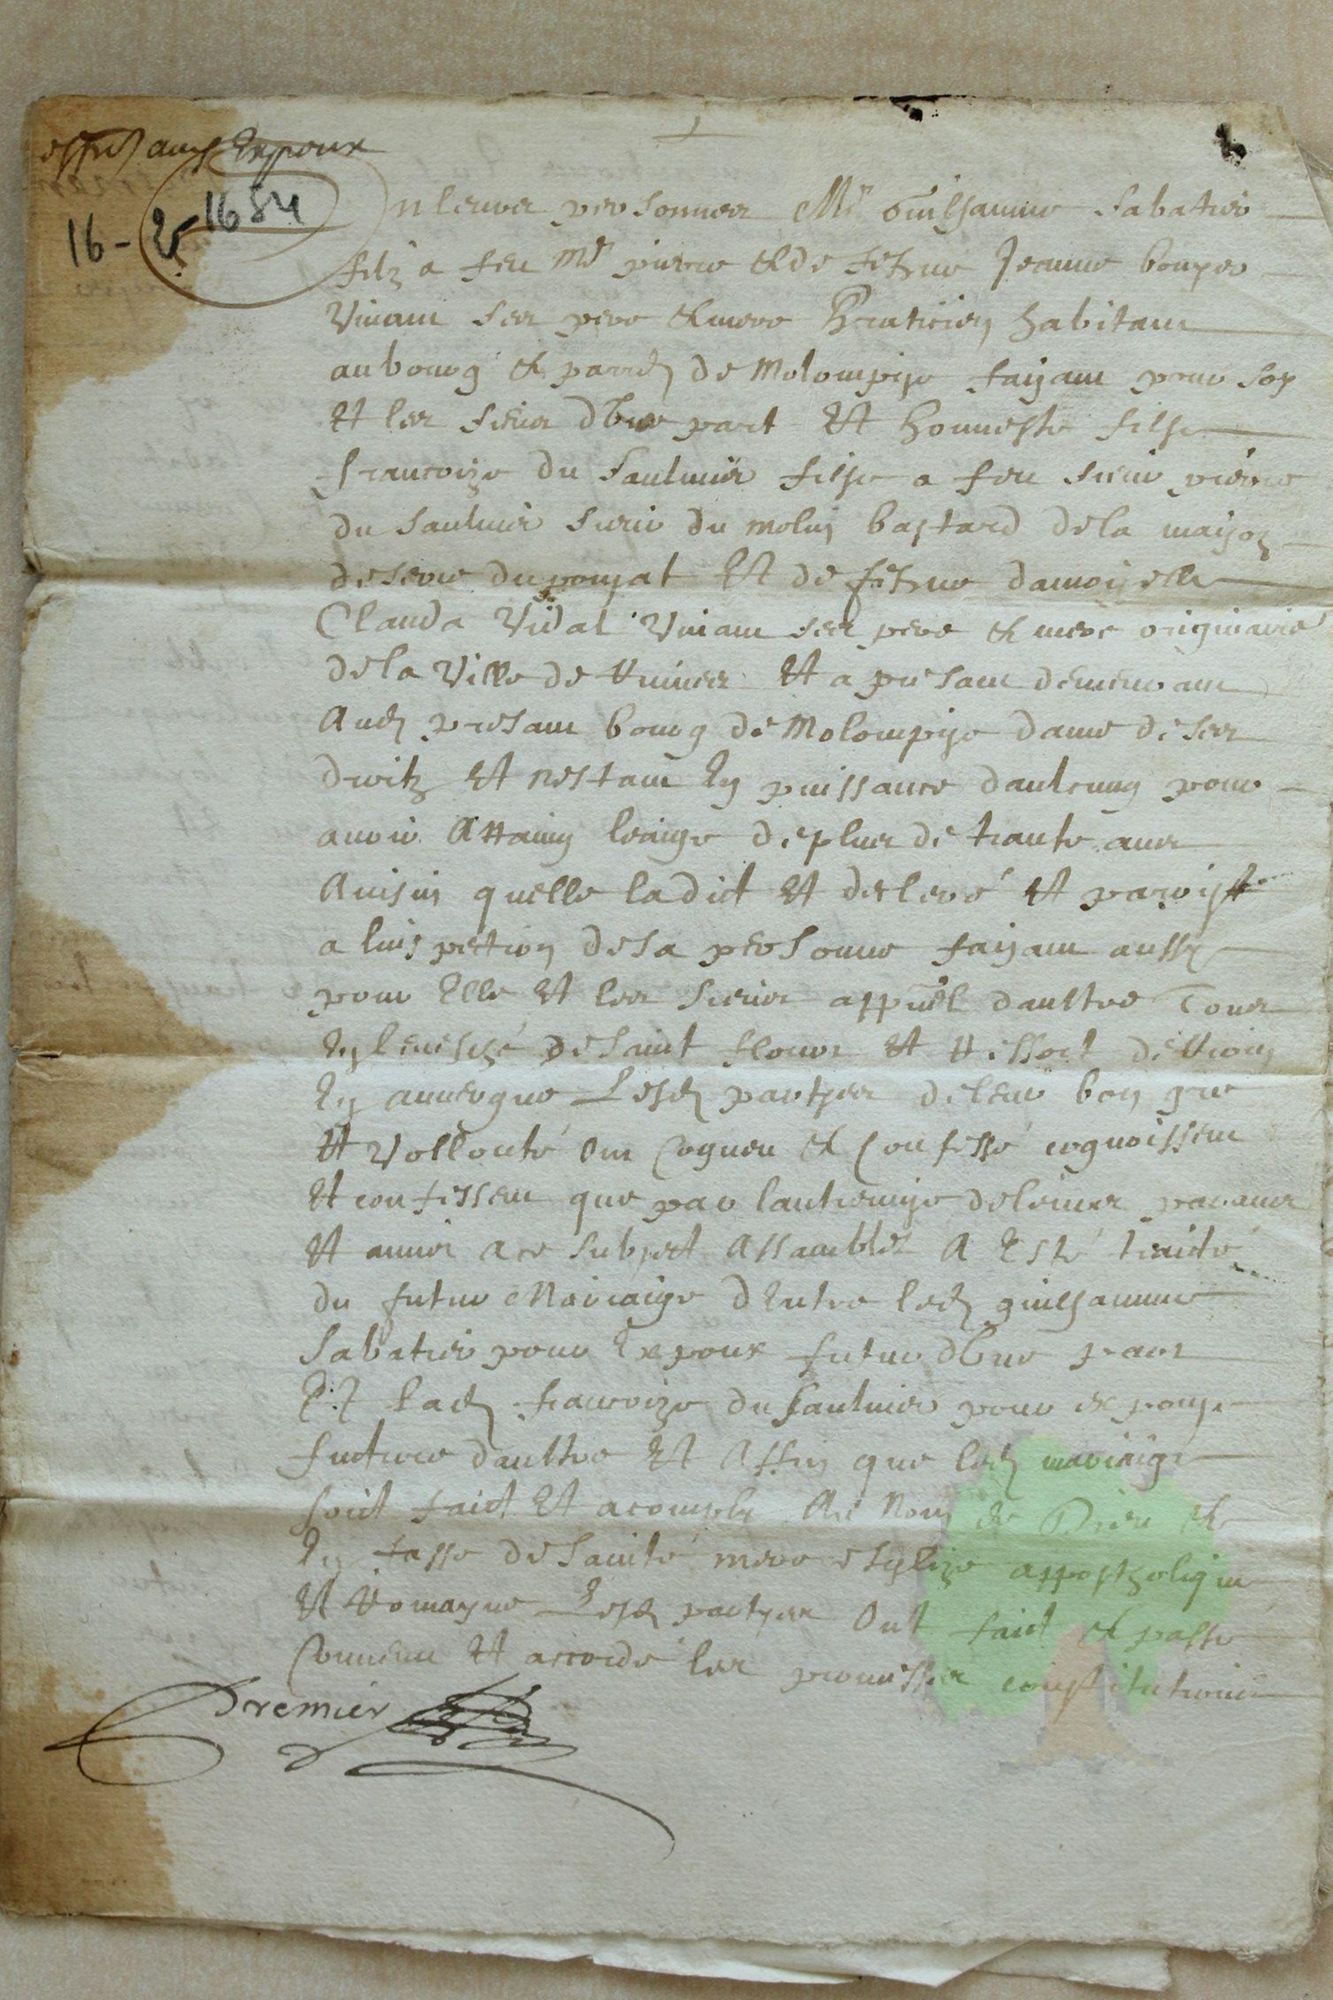 aux Expoux
1654
16 -
personnes Me Guilhaume Sabatier
filz a feu Me pierre & de fehue Jeanne
vivant ses pere & mere praticien habitant
au bourg & parr. de Molompize faisant pour soy
Et les siens dune part Et honneste filhe
francoize du Saulnier filhe a feu sieur pierre
du Saulnier sieur du molin bastard de la maison
de fehue damoiselle
Clauda Vidal vivant ses pere & mere originaire
de la Ville de Et a presant demeurant
Aud. presant bourg de Molompize dame de ses
droitz Et nestant En puissance daulcung pour
avoir Attaing leaige de plus de trante ans
Ainsin quelle la dict Et descleré Et paroist
a linspection de sa personne faisant aussy
pour Elle Et les siens daultre Tous
En levesché de Saint flour Et ressort de Riom
En auvergne Lesd. partyes de leur bon gre
Et Vollonté ont Cogneu & Confessé cognoissent
Et confessent que par lantremize de leurs parans
Et amis a ce subject Assamblés A Esté traité
du futur Mariaige dEntre led. guilhaume
Sabatier pour Expoux futur dune part
Et lad. francoize du Saulnier pour expouze
future daultre Et Affin que led. mariaige
soit faict Et acomply Au Nom de Dieu &
En fasse de Sainte mere esglize appostholique
Et Romayne Lesd. partyes Ont faict & passé
Convenu Et accordé les promesses constitutions
Premier